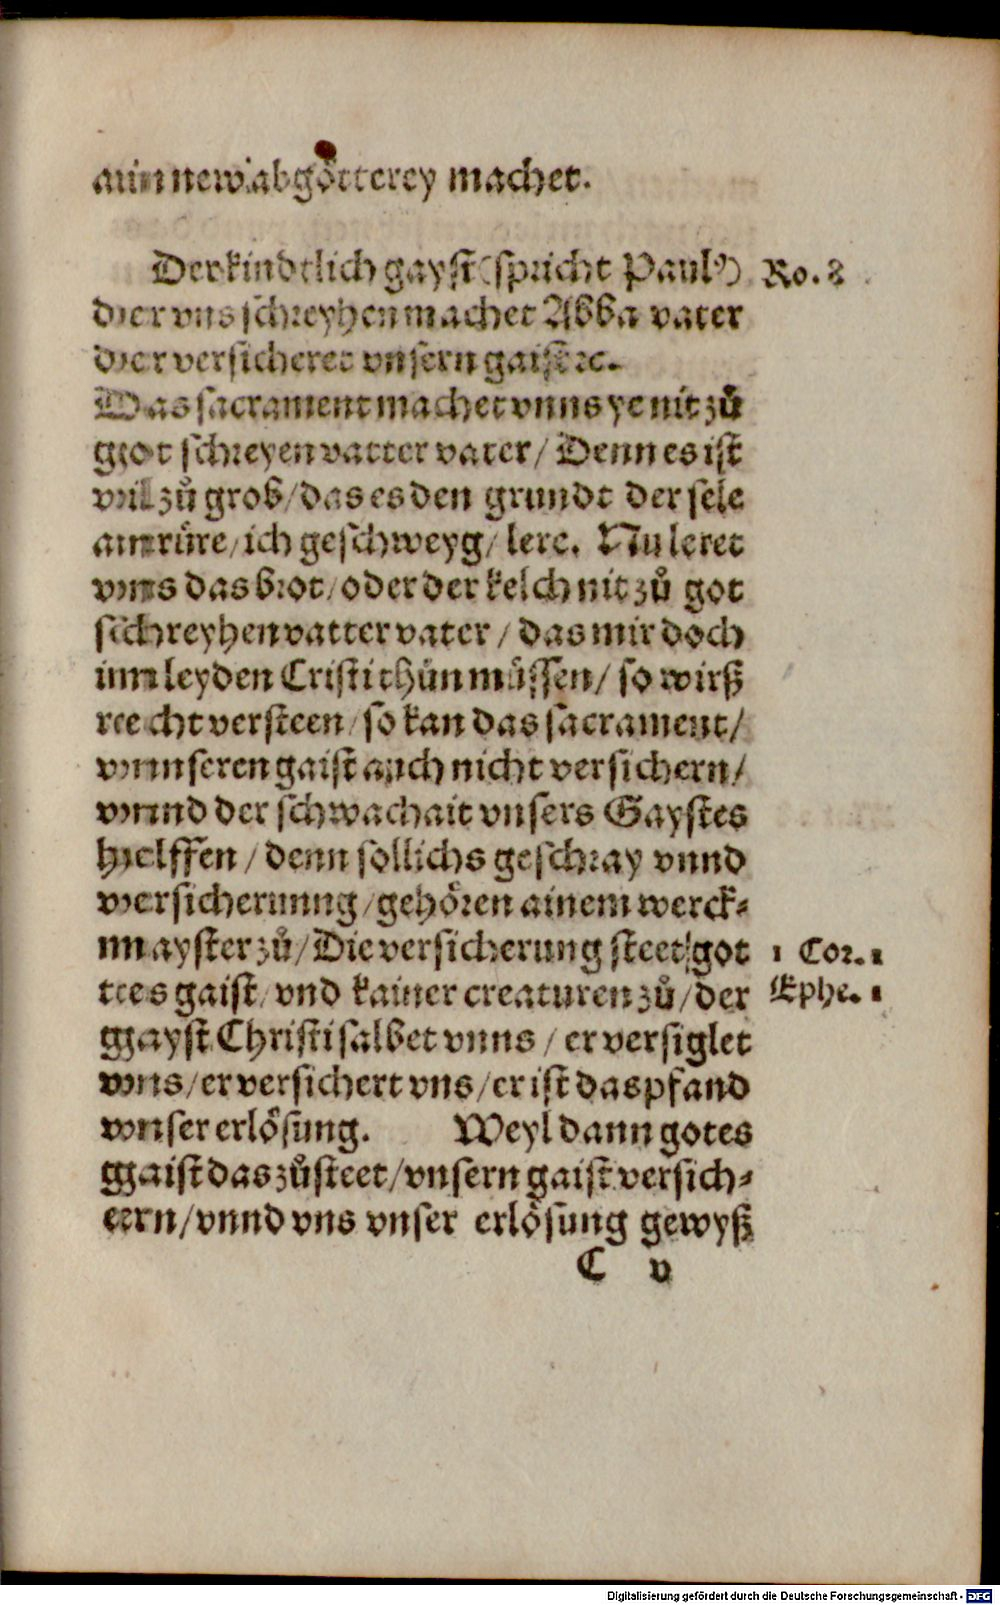 ain new abgötterey machet.
Der kindtlich gayst (spricht Paulꝰ) Ro. 8
der vns schreyhen machet Abba vater
der versicheret vnsern gaist ꝛc.
Das sacrament machet vnns ye nit zů
got schreyen vatter vater / Denn es ist
vil zů grob / das es den grundt der sele
anrüre / ich geschweyg / lere. Nu leret
vns das brot / oder der kelch nit zů got
schreyhen vatter vater / das mir doch
im leyden Cristi thůn müssen / so wirß
recht versteen / so kan das sacrament /
vnnseren gaist auch nicht versichern /
vnnd der schwachait vnsers Gaystes
helffen / denn sollichs geschray vnnd
versicherunng / gehören ainem werck⸗
mayster zů / Die versicherung steet got 1 Cor. 1
tes gaist / vnd kainer creaturen zů / der Ephe. 1
gayst Christi salbet vnns / er versiglet
vns / er versichert vns / er ist das pfand
vnser erlösung. Weyl dann gotes
gaist das zůsteet / vnsern gaist versich⸗
ern / vnnd vns vnser erlösung gewyß
C v
Digitalisierung gefördert durch die Deutsche Forschungsgemeinschaft - DFG